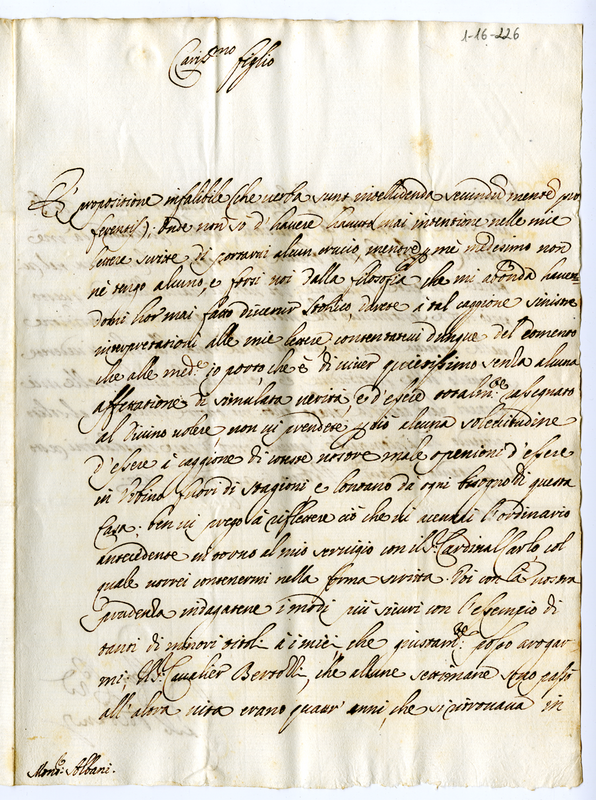 1-16-226
Cariss.mo figlio
È propositione infalibile (che verba sunt intelligenda secundum mentem pro
ferentis); Onde non so d'havere havuta mai intentione nelle mie
lettere scritte di portarvi alcun crucio, mentre p me medesimo non
ne tengo alcuno, e forsi voi dalla filosofia che mi abonda haven
dovi hor mai fatto divenir Stoico darete à tal caggione sinistre
interpretationi alle mie lettere, contentatevi dunque del comento
che alle med.e io porto che è di viver quietissimo senza alcuna
affettatione ò simulata verità, e d'essere totalm.te rassegnato
al Divino volere, non vi prendete p ciò alcuna solecitudine
d'essere i caggione di coteste vostre male openioni d'essere
in Urbino fuori di stagioni e lontano da ogni bisogno di questa
Casa, ben vi prego à riflettere ciò che vi accenai l'ordinario
antecedente intorno al mio servigio con il S.r Cardinal Carlo col
quale vorrei contenermi nella forma scritta. Voi con la vostra
prudenza indagatene i modi più sicuri con l'esempio di
tanti di minori titoli à i miei che giustam.te posso arrogar
mi; Il S.r Cavalier Bertolli, che alcune settimane sono passò
all'altra vita erano quatr' anni, che si ritrovava in
Mons.r Albani.